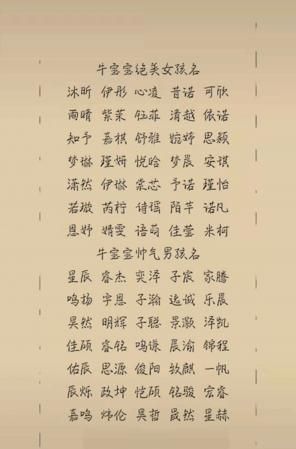 牛宝宝绝美女孩名
沐昕 伊彤 心凌 昔诺 可欣
雨晴 紫茉 钰菲 清越 依诺
知予 嘉棋 舒雅 婉婷 思颖
梦琳 瑾妍 悦晗 梦晨 安琪
潇然 伊琳 棠芯 予诺 瑾怡
若璇 芮柠 诗瑶 陌芊 诺凡
恩妤 婧雯 语萌 佳莹 米柯
牛宝宝帅气男孩名
星辰 睿杰 奕泽 子宸 家腾
鸣扬 宇恩 子瀚 逸诚 乐晨
昊然 明辉 子聪 景灏 泽凯
佳硕 睿铭 鸣谦 晨渝 锦程
佑辰 思源 俊阳 牧麒 一帆
辰烁 政坤 恺硕 铭骏 宏睿
嘉鸣 炜伦 昊哲 晟然 星赫